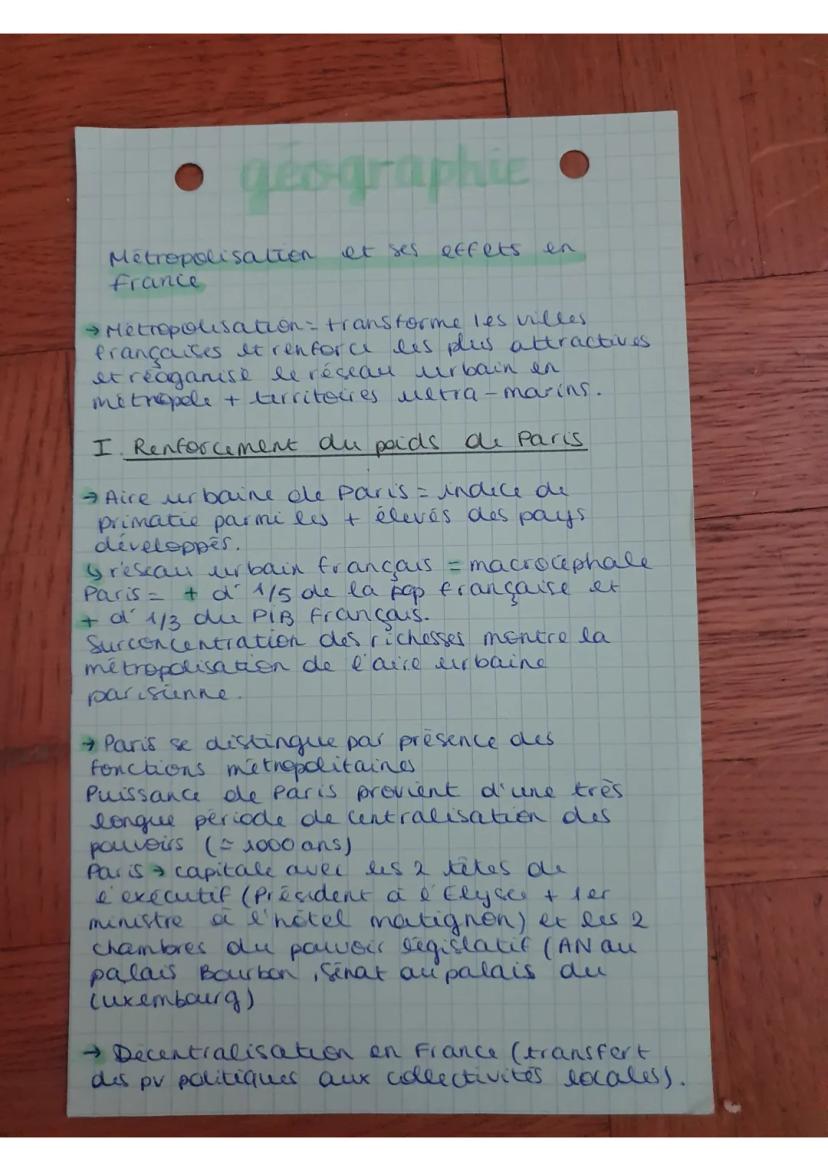 géographie
Métropolisation et ses effets en
France
→ Métropolisation = transforme les villes
françaises et renforce les plus attractives
et réoganise le réseau urbain en
métropole + territoires ultra-marins.
I Renforcement du poids de Paris
→ Aire urbaine de Paris = indice de
primatie parmi les + élevés des pays
développés.
↳ réseau urbain français = macrocéphale
Paris = + d' 1/5 de la pop française et
+ d' 1/3 du PIB français.
Surconcentration des richesses montre la
métropolisation de l'aire urbaine
parisienne.
→ Paris se distingue par présence des
fonctions métropolitaines
Puissance de Paris provient d'une très
longue période de centralisation des
pouvoirs (= 1000 ans)
Paris → capitale avec les 2 têtes de
l'exécutif (Président à l'Elysée + 1er
ministre à l'hôtel matignon) et les 2
chambres du pouvoir législatif (AN au
palais Bourbon, Sénat au palais du
Luxembourg)
→ Décentralisation en France (transfert
des pv politiques aux collectivités locales).